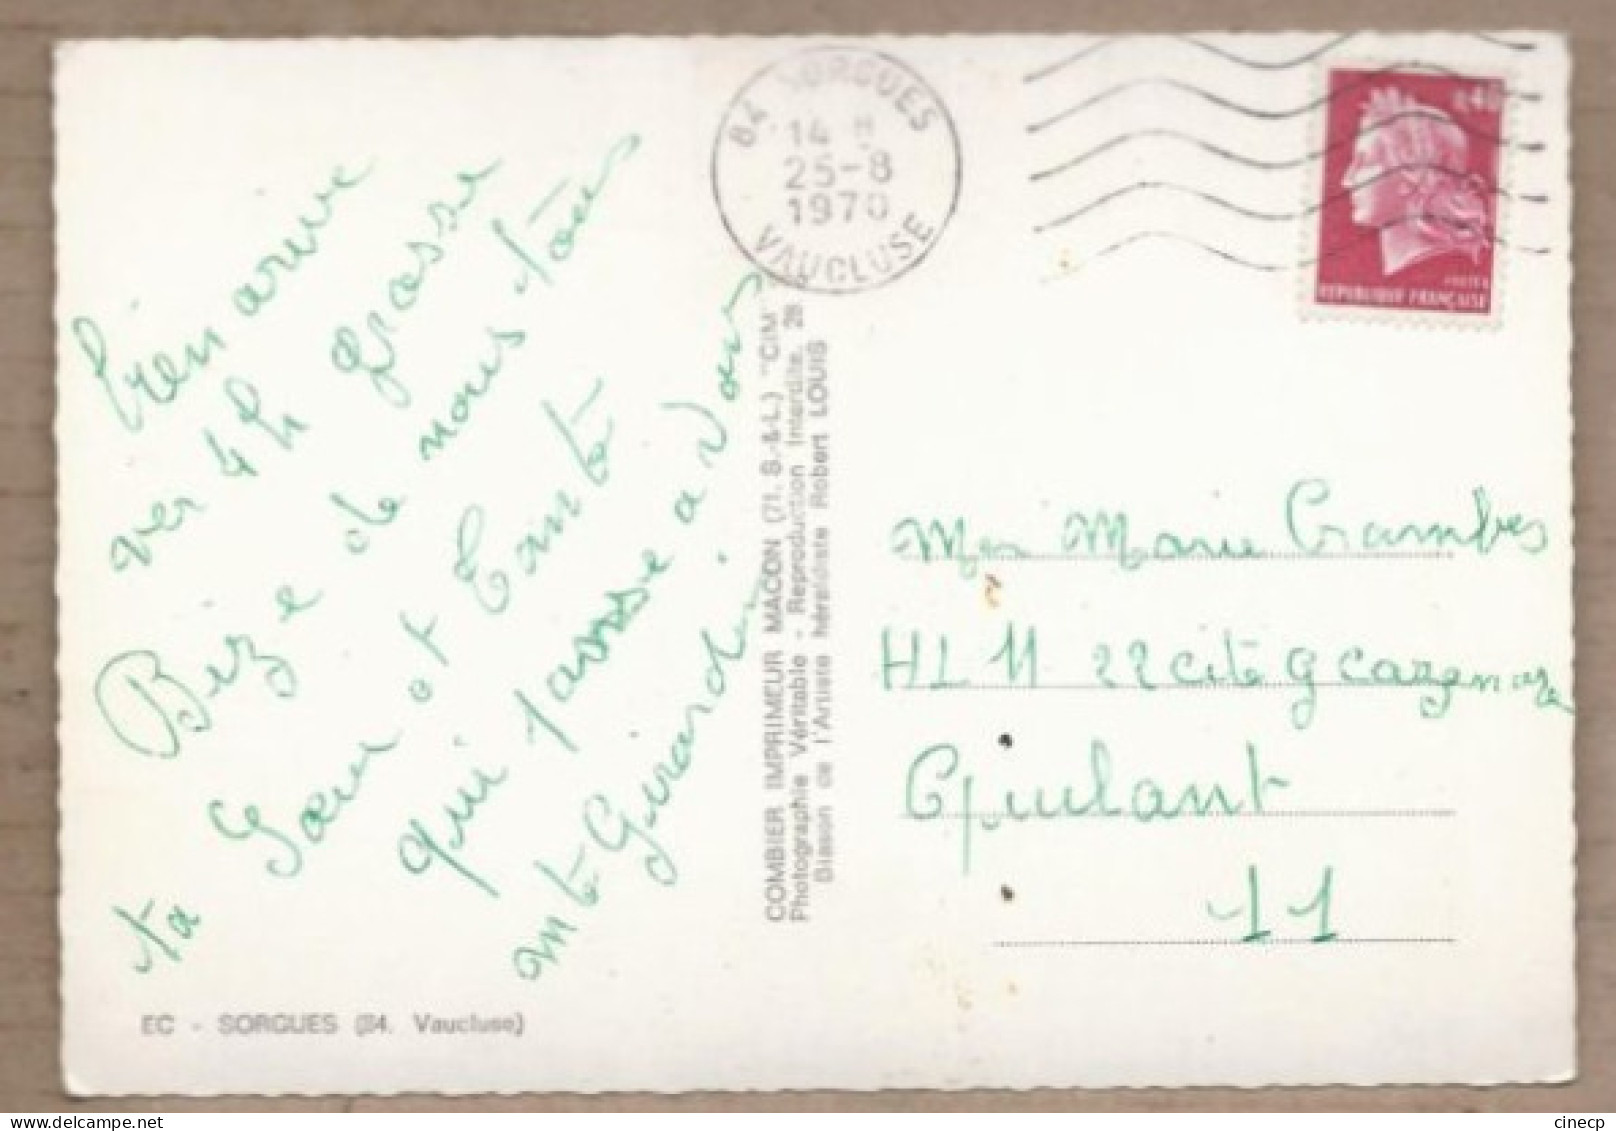 bien arivé
ver 4h grosse
Bize de nous tous
ta Sœur et Tanté
qui panse a vous
mté Girardin.
EC - SORGUES (84. Vaucluse)
COMBIER IMPRIMEUR MACON (71. S.-&-L.) "CIM"
Photographie Véritable - Reproduction Interdite. 28
Blason ce l'Artiste héraldiste Robert LOUIS
84 SORGUES
14 H
25-8
1970
VAUCLUSE
0,40
POSTES
REPUBLIQUE FRANÇAISE
Marie Crambes
HLM 22 cité G
11
cinecp